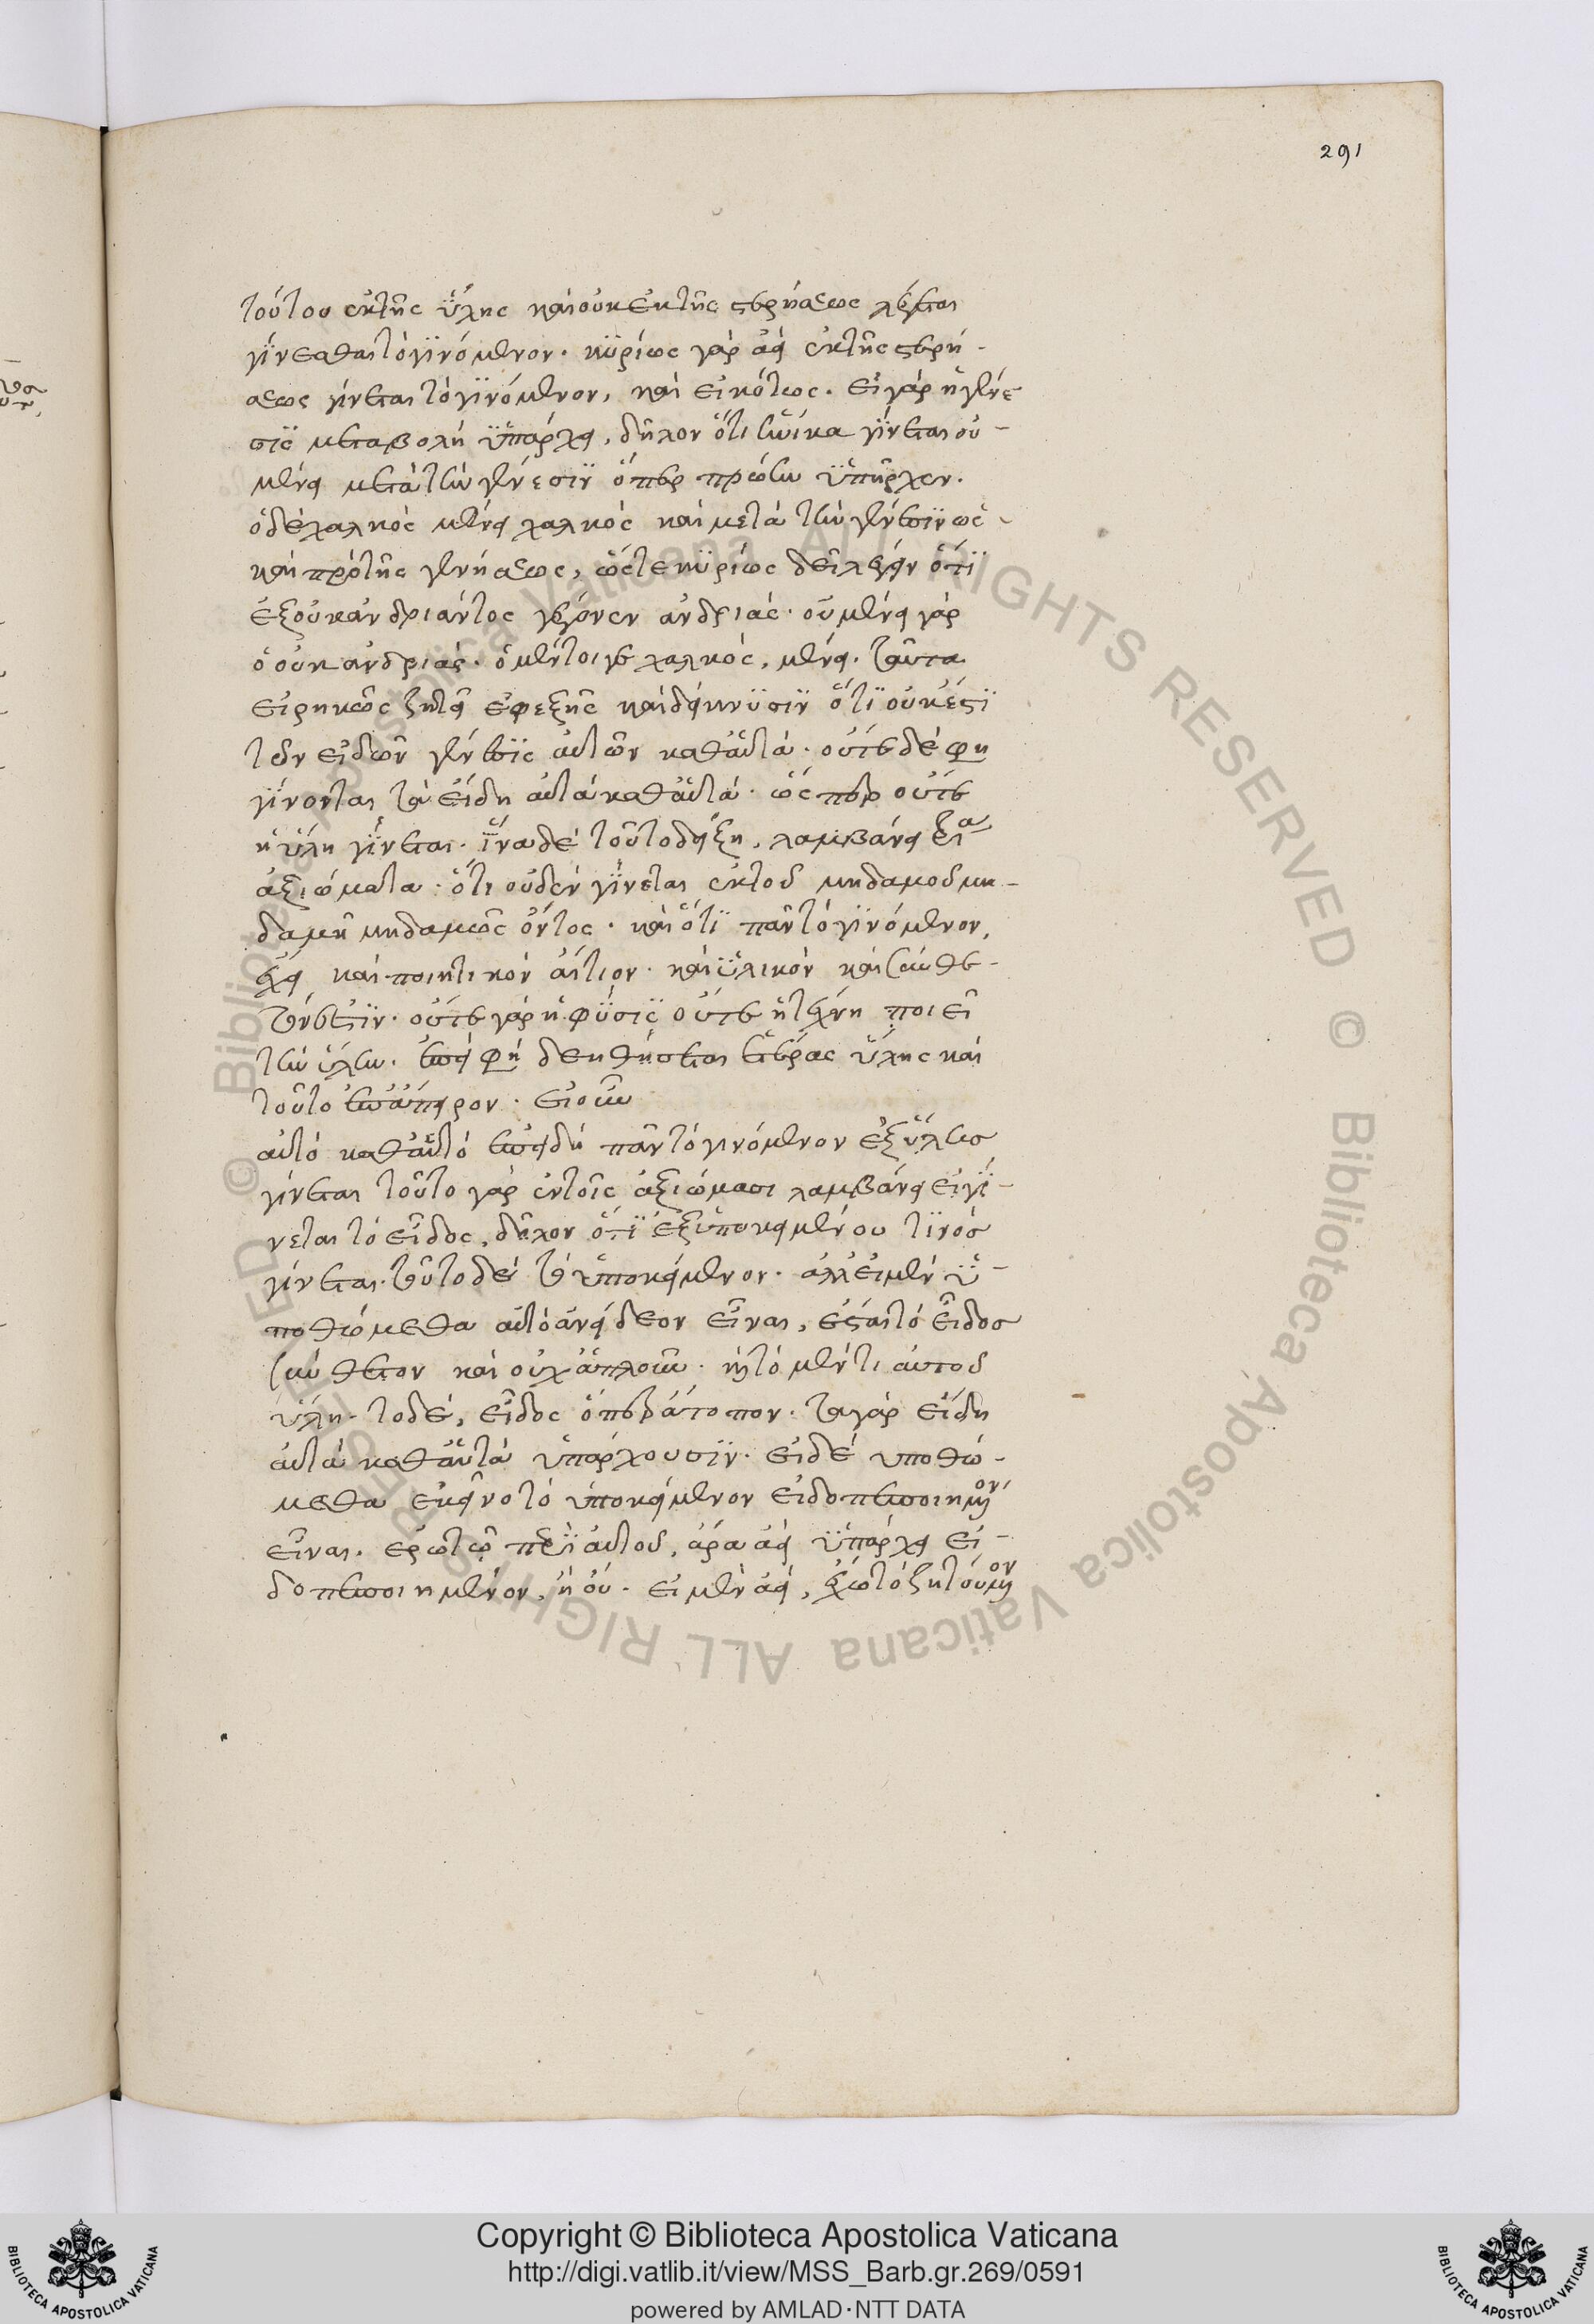 291
τούτου ἐκ τῆς ὕλης καὶ οὐκ ἐκ τῆς στερήσεως λέγεται
γίνεσθαι τὸ γινόμενον. κυρίως γὰρ ἀεὶ ἐκ τῆς στερή-
σεως γίνεται τὸ γινόμενον, καὶ εἰκότως. εἰ γὰρ ἡ γένε-
σις μεταβολὴ ὑπάρχει, δῆλον ὅτι ἡνίκα γίνεται οὐ-
μένει μετὰ τὴν γένεσιν ὅπερ πρώην ὑπῆρχεν.
ὁ δὲ χαλκὸς μένει χαλκὸς καὶ μετὰ τὴν γένεσιν ὡς
καὶ πρὸ τῆς γενήσεως, ὥστε κυρίως δεῖ λέγειν ὅτι
ἐξ οὐκ ἀνδριάντος γέγονεν ἀνδριάς. οὐ μένει γὰρ
ὁ οὐκ ἀνδριάς. ὁ μέντοιγε χαλκός, μένει. ταῦτα
εἰρηκὼς ζητεῖ ἐφεξῆς καὶ δείκνυσιν ὅτι οὐκ ἔστι
τῶν εἰδῶν γένεσις αὐτῶν καθ' αὑτά. οὔτε δέ φη
γίνονται τὰ εἴδη αὐτὰ καθ' αὑτά. ὥσπερ οὔτε
ἡ ὕλη γίνεται. ἵνα δὲ τοῦτο δείξῃ, λαμβάνει
ἀξιώματα. ὅτι οὐδὲν γίνεται ἐκ τοῦ μηδαμοῦ μη-
δαμῆ μηδαμῶς ὄντος. καὶ ὅτι πᾶν τὸ γινόμενον,
ἔχει καὶ ποιητικὸν αἴτιον. καὶ ὑλικὸν καὶ σύνθε-
τόν ἐστιν. οὔτε γὰρ ἡ φύσις οὔτε ἡ τέχνη ποιεῖ
τὴν ὕλην. ἐπεί φη δεηθήσεται ἑτέρας ὕλης καὶ
τοῦτο ἐπ' ἄπειρον. εἰ οὖν
αὐτὸ καθ' αὑτὸ ἐπειδὴ πᾶν τὸ γινόμενον ἐξ ὕλης
γίνεται τοῦτο γὰρ ἐν τοῖς ἀξιώμασι λαμβάνει εἰ γί-
νεται τὸ εἶδος, δῆλον ὅτι ἐξ ὑποκειμένου τινὸς
γίνεται. τοῦτο δὲ τὸ ὑποκείμενον. ἀλλ' εἰ μὲν ὑ-
ποθώμεθα αὐτὸ ἀνείδεον εἶναι, ἔσται τὸ εἶδος
σύνθετον καὶ οὐχ ἁπλοῦν. καὶ τὸ μέν τι αὐτοῦ
ὕλη. τὸ δέ, εἶδος ὅπερ ἄτοπον. τὰ γὰρ εἴδη
αὐτὰ καθ' αὑτὰ ὑπάρχουσιν. εἰ δὲ ὑποθώ-
μεθα ἐκεῖνο τὸ ὑποκείμενον εἰδοπεποιημένον
εἶναι. ἐρωτῶ περὶ αὐτοῦ, ἆρα ἀεὶ ὑπάρχει εἰ-
δοπεποιημένον, ἢ οὔ. εἰ μὲν ἀεί, ἔχω τὸ ζητούμενον
Copyright © Biblioteca Apostolica Vaticana
http://digi.vatlib.it/view/MSS_Barb.gr.269/0591
powered by AMLAD·NTT DATA